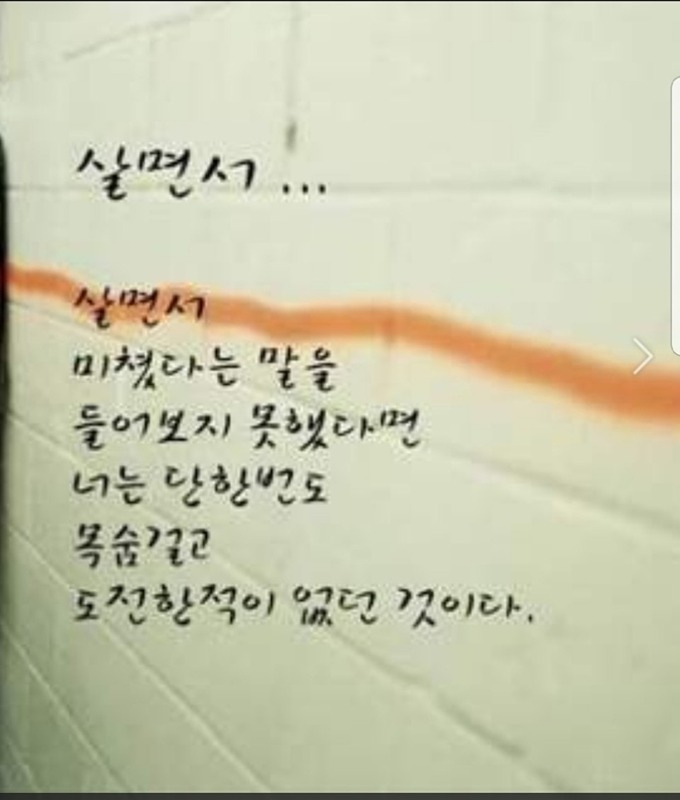 살면서 ...
살면서
미쳤다는 말을
들어보지 못했다면
너는 단한번도
목숨걸고
도전한적이 없던 것이다.